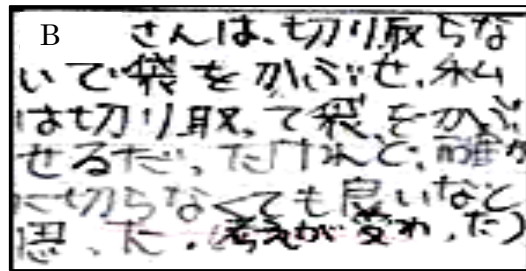 B さんは、切り取らな
いで袋をかぶせ、私
は切り取って袋をかぶ
せるだったけれど、確か
に切らなくても良いなと
思った。(考えが変わった)